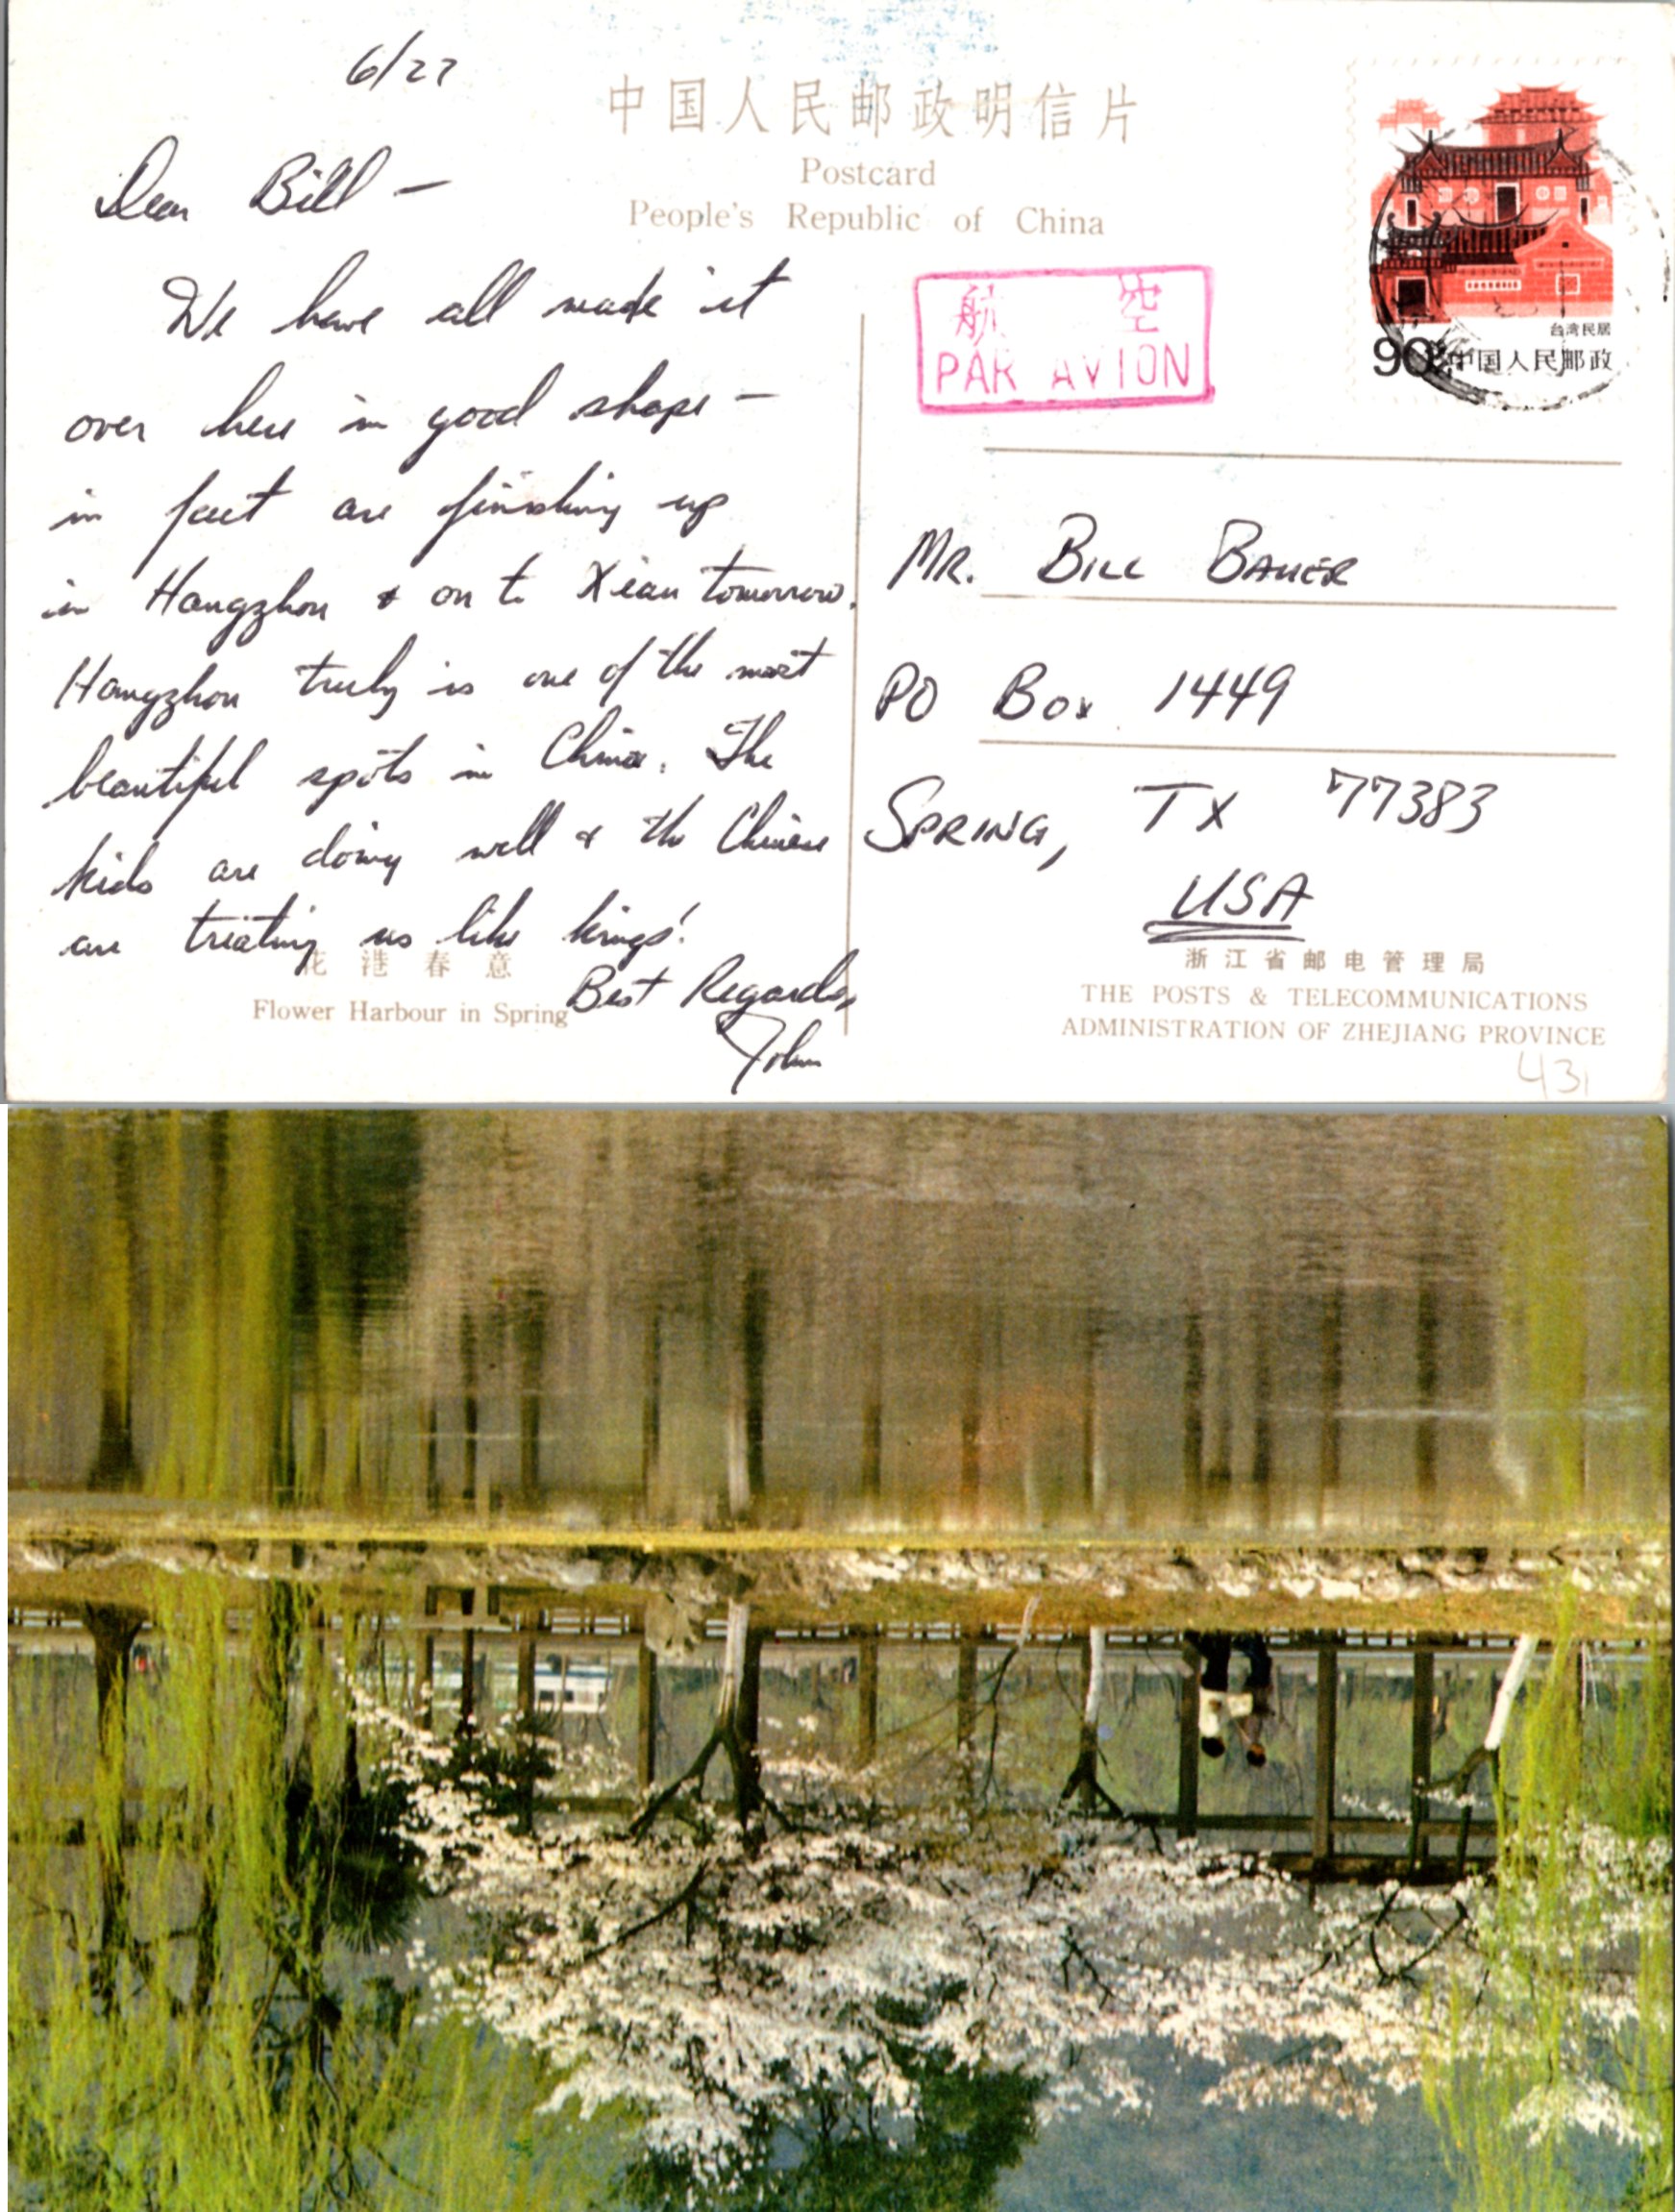 6/27
Dear Bill —
We have all made it
over here in good shape —
in fact are finishing up
in Hangzhou & on to Xian tomorrow.
Hangzhou truly is one of the most
beautiful spots in China. The
kids are doing well & the Chinese
are treating us like kings!
Best Regards,
John
花港春意
Flower Harbour in Spring
中国人民邮政明信片
Postcard
People's Republic of China
航 空
PAR AVION
台湾民居
90 中国人民邮政
MR. BILL BAUER
PO BOX 1449
SPRING, TX 77383
USA
浙江省邮电管理局
THE POSTS & TELECOMMUNICATIONS
ADMINISTRATION OF ZHEJIANG PROVINCE
431